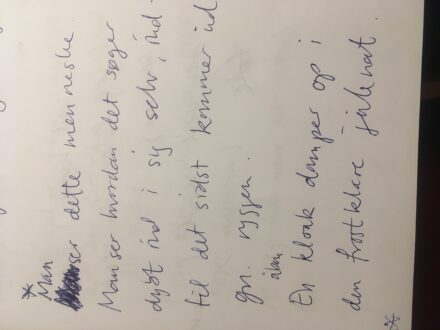 *
Man
ser dette menneske.
Man ser hvordan det søger
dybt ind i sig selv, ind-
til det sidst kommer ud
gn. ryggen.
åben
En kloak damper op i
den frostklare julenat.
*